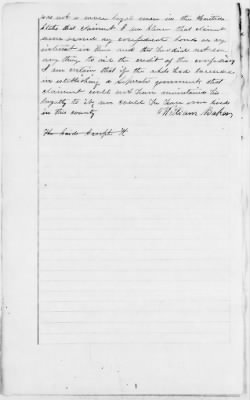 was not a more loyal man in the United
States than claimant. I know that claimant
never owned any confederate bonds or any
interest in them and that he did not do
any thing to aid the credit of the confederacy
I am certain that if the rebels had succeeded
in establishing a separate government that
claimant could not have maintained his
loyalty to it, nor could he have
in this county William Baker